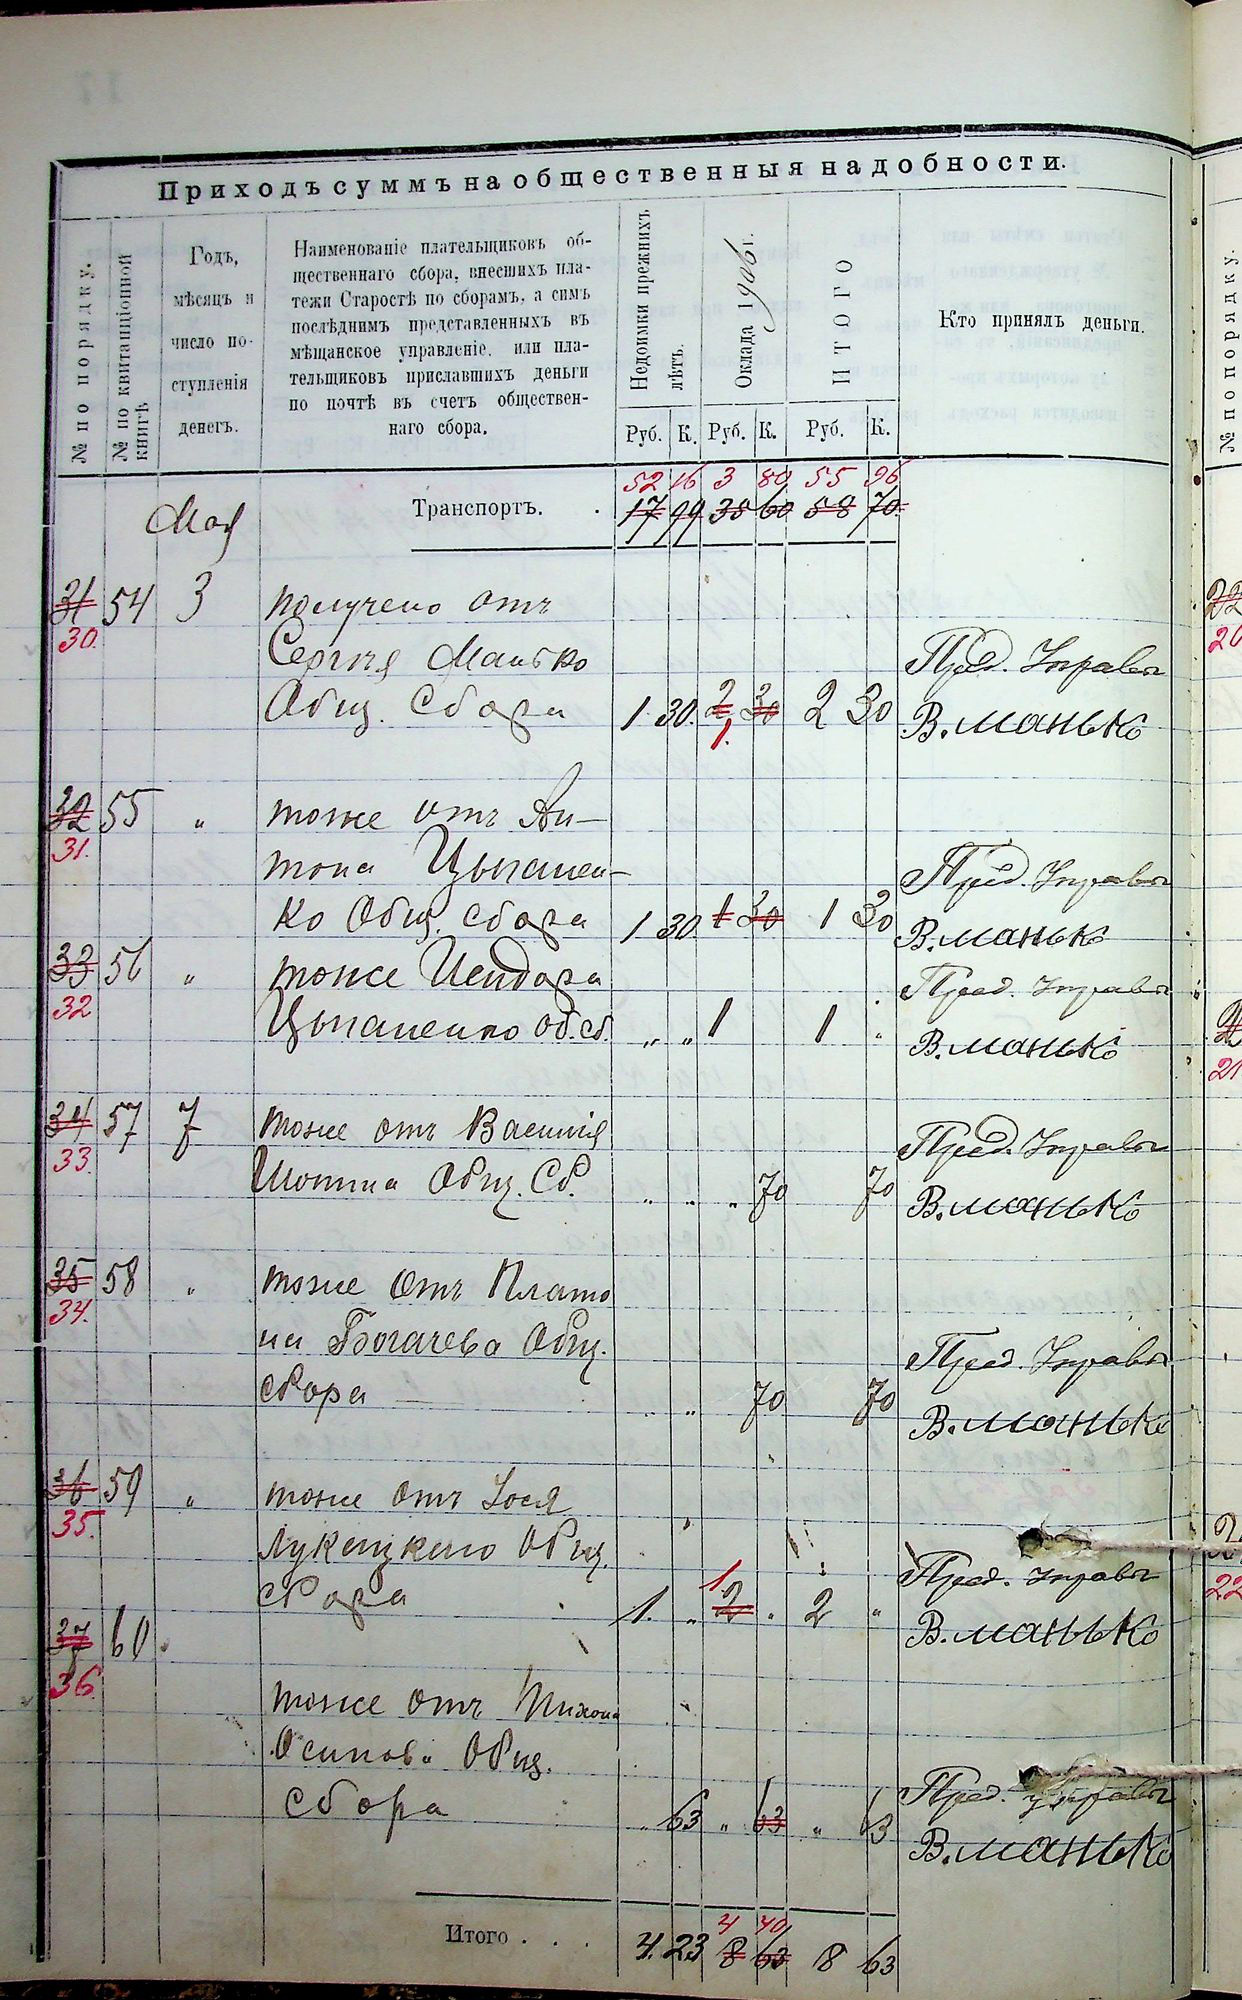 Приходъ суммъ на общественныя надобности.
№ по порядку.
№ по квитанціонной книгѣ
Годъ,
мѣсяцъ и
число по-
ступленія
денегъ.
Наименованіе плательщиковъ об-
щественнаго сбора, внесшихъ пла-
тежи Старостѣ по сборамъ, а симъ
послѣднимъ представленныхъ въ
мѣщанское управленіе, или пла-
тельщиковъ приславшихъ деньги
по почтѣ въ счетъ обществен-
наго сбора.
Недоимки прежнихъ
лѣтъ.
Оклада 1906 г.
ИТОГО
Кто принялъ деньги.
Руб. К. Руб. К. Руб. К.
52 16 3 80 55 96
Мая Транспортъ. 17 99 35 60 58 70
31 54 3 получено отъ
30. Сергѣя Манько Пред. Управы
Общ. Сбора 1 30. 2 30 2 30 В. Манько
1.
32 55 " тоже отъ Ан-
31. тона Цыганен- Пред. Управы
ко Общ. сбора 1 30 1 30 1 30 В. Манько
33 56 " тоже Исидора Пред. Управы
32 Цыганенко об. сб. " " 1 1 " В. Манько
34 57 7 тоже отъ Василія Пред. Управы
33. Общ. Сб. " " " 70 70 В. Манько
35 58 " тоже отъ Плато
34. на Богачева Общ. Пред. Управы
сбора — " " 70 70 В. Манько
36 59 " тоже отъ
35. Общ. Пред. Управы
сбора 1. " 2 " 2 " В. Манько
1
37 60
36. тоже отъ Тихона
Осипова Общ. Пред. управы
сбора " 63 " 63 " 63 В. Манько
4 40
Итого . . . 4. 23 8 63 8 63
№ по порядку.
22
20
21
22